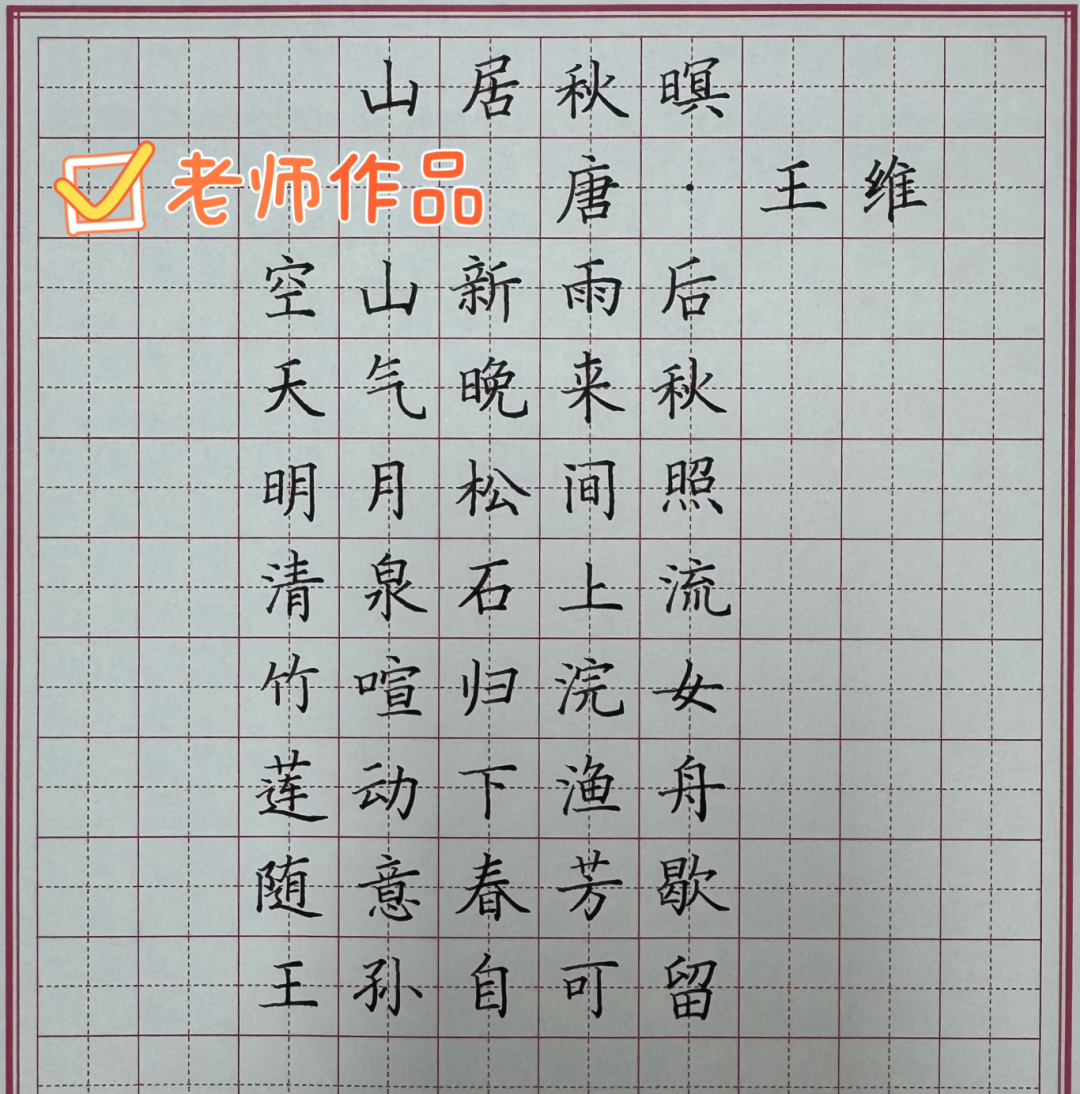 山居秋暝
老师作品
唐·王维
空山新雨后
天气晚来秋
明月松间照
清泉石上流
竹喧归浣女
莲动下渔舟
随意春芳歇
王孙自可留